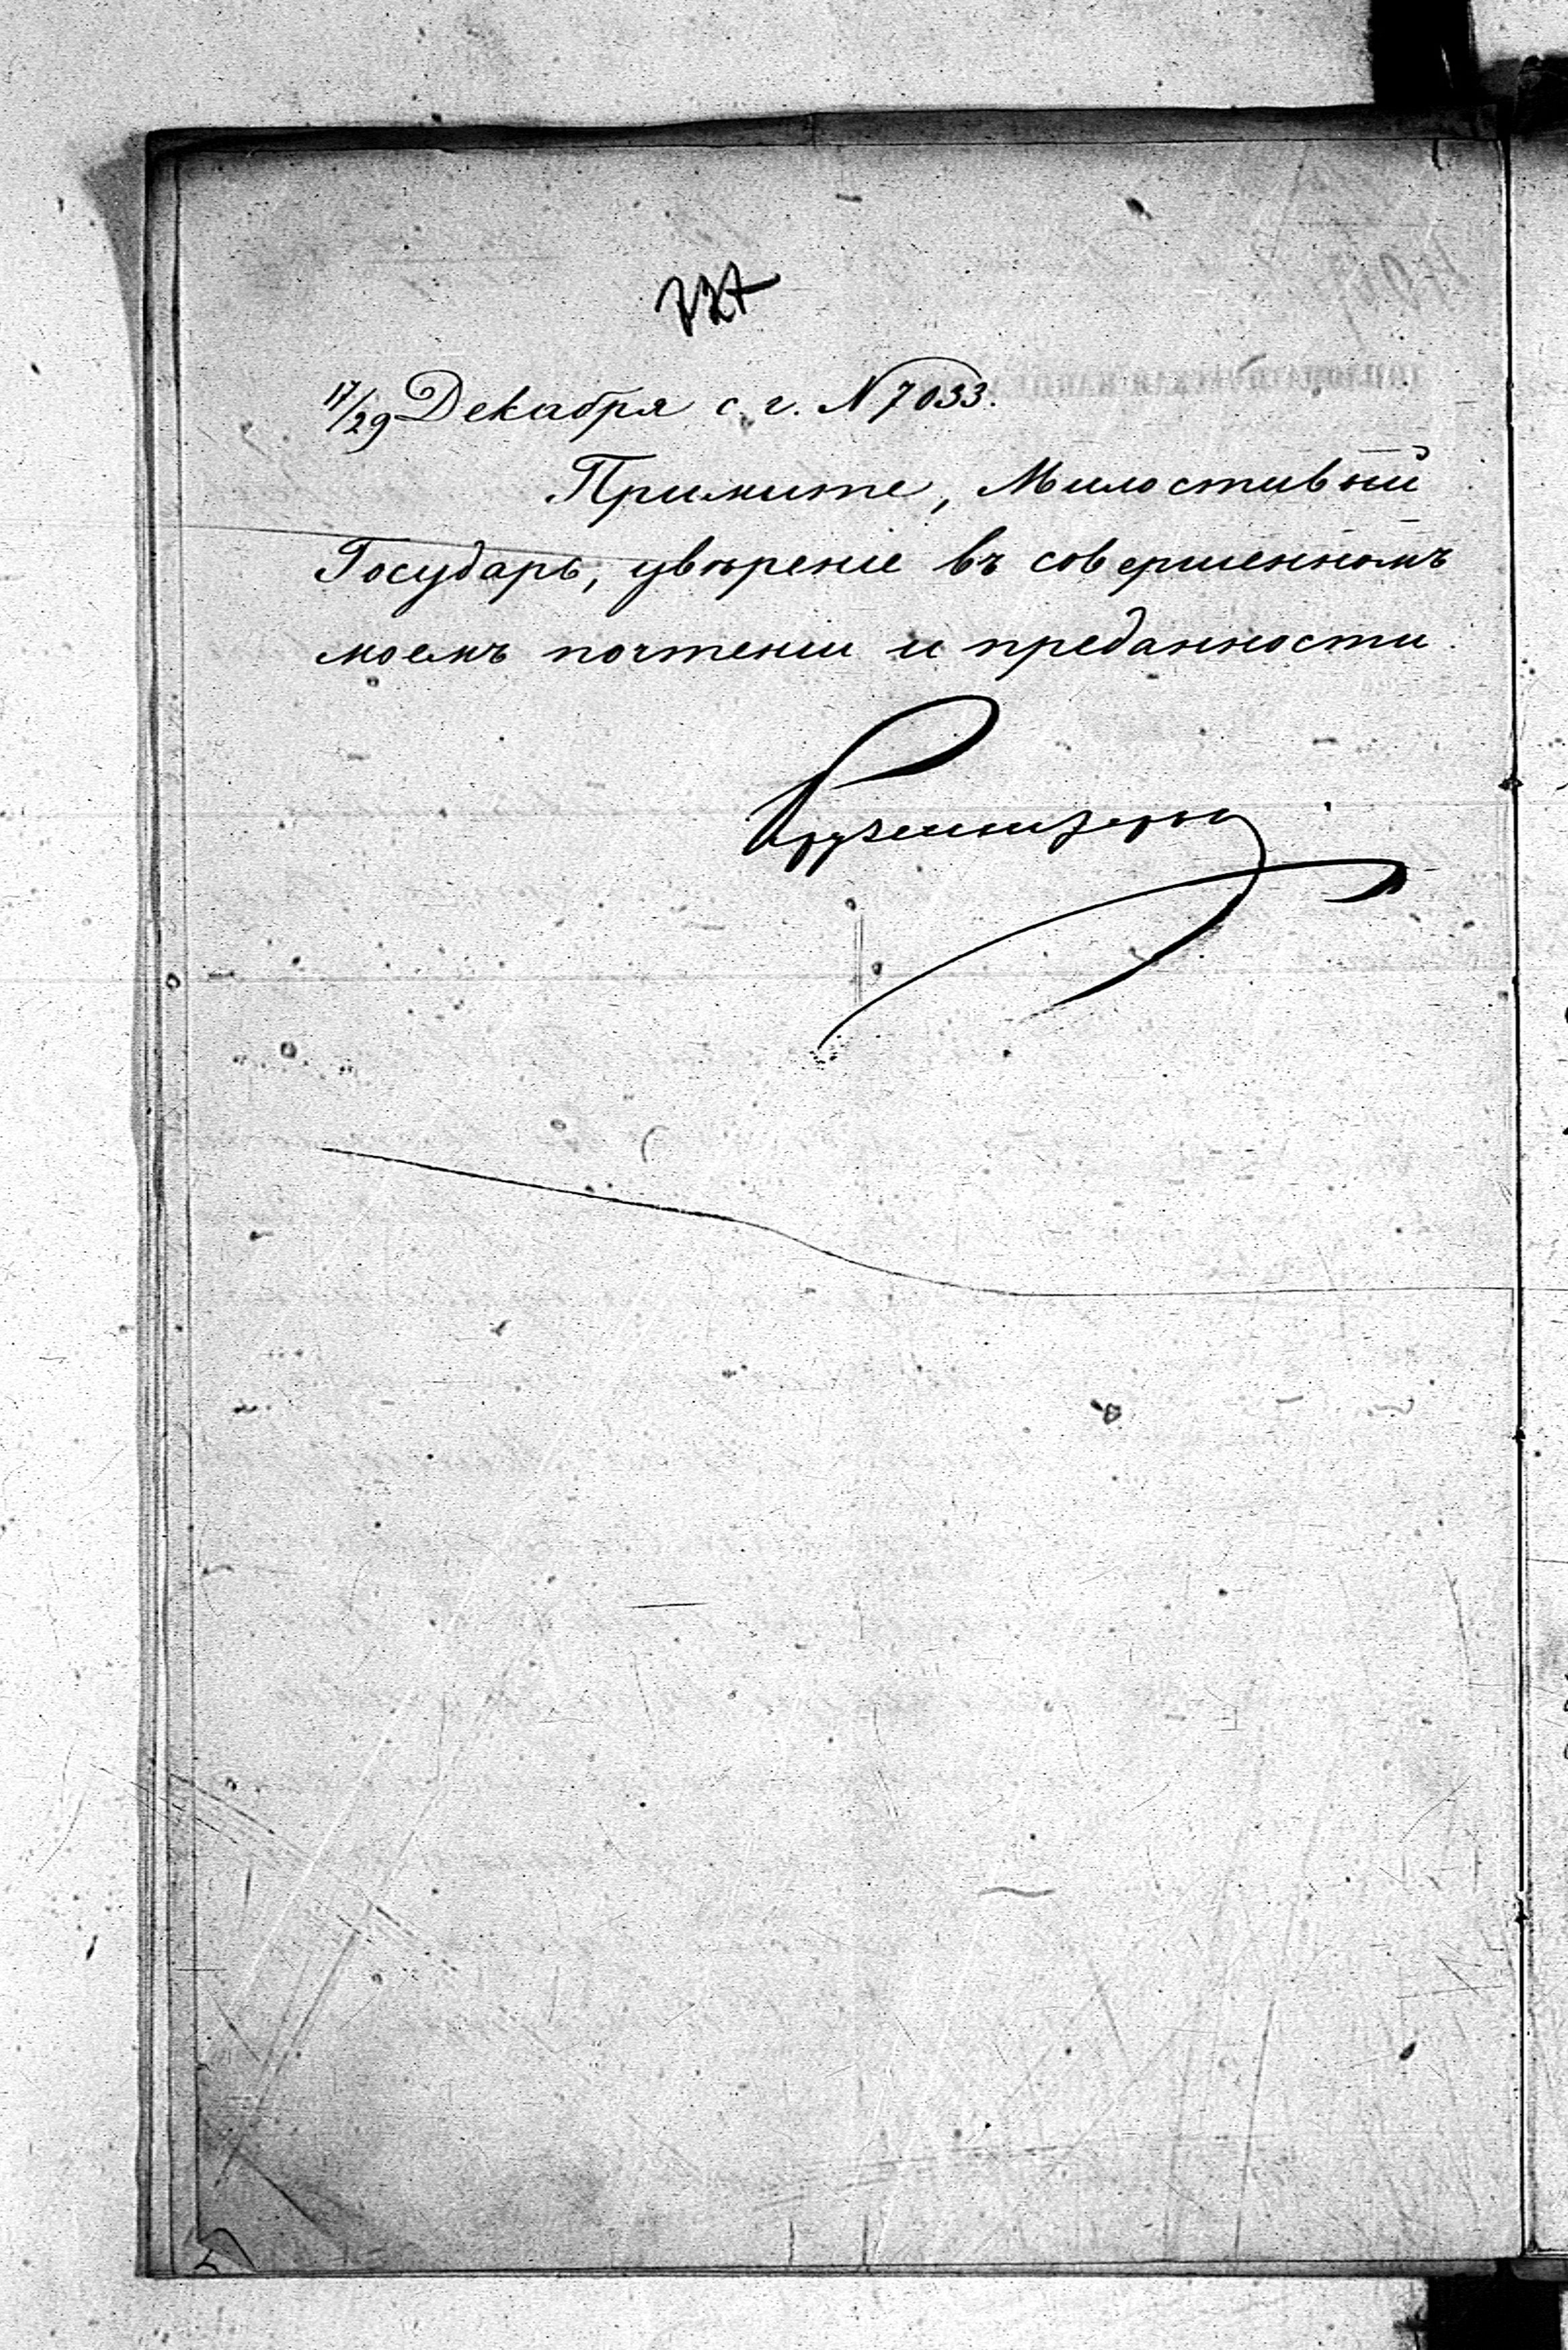 17/29 Декабря с. г. N 7033.
Примите, Милостивый
Государь, увѣреніе въ совершенномъ
моемъ почтеніи и преданности.